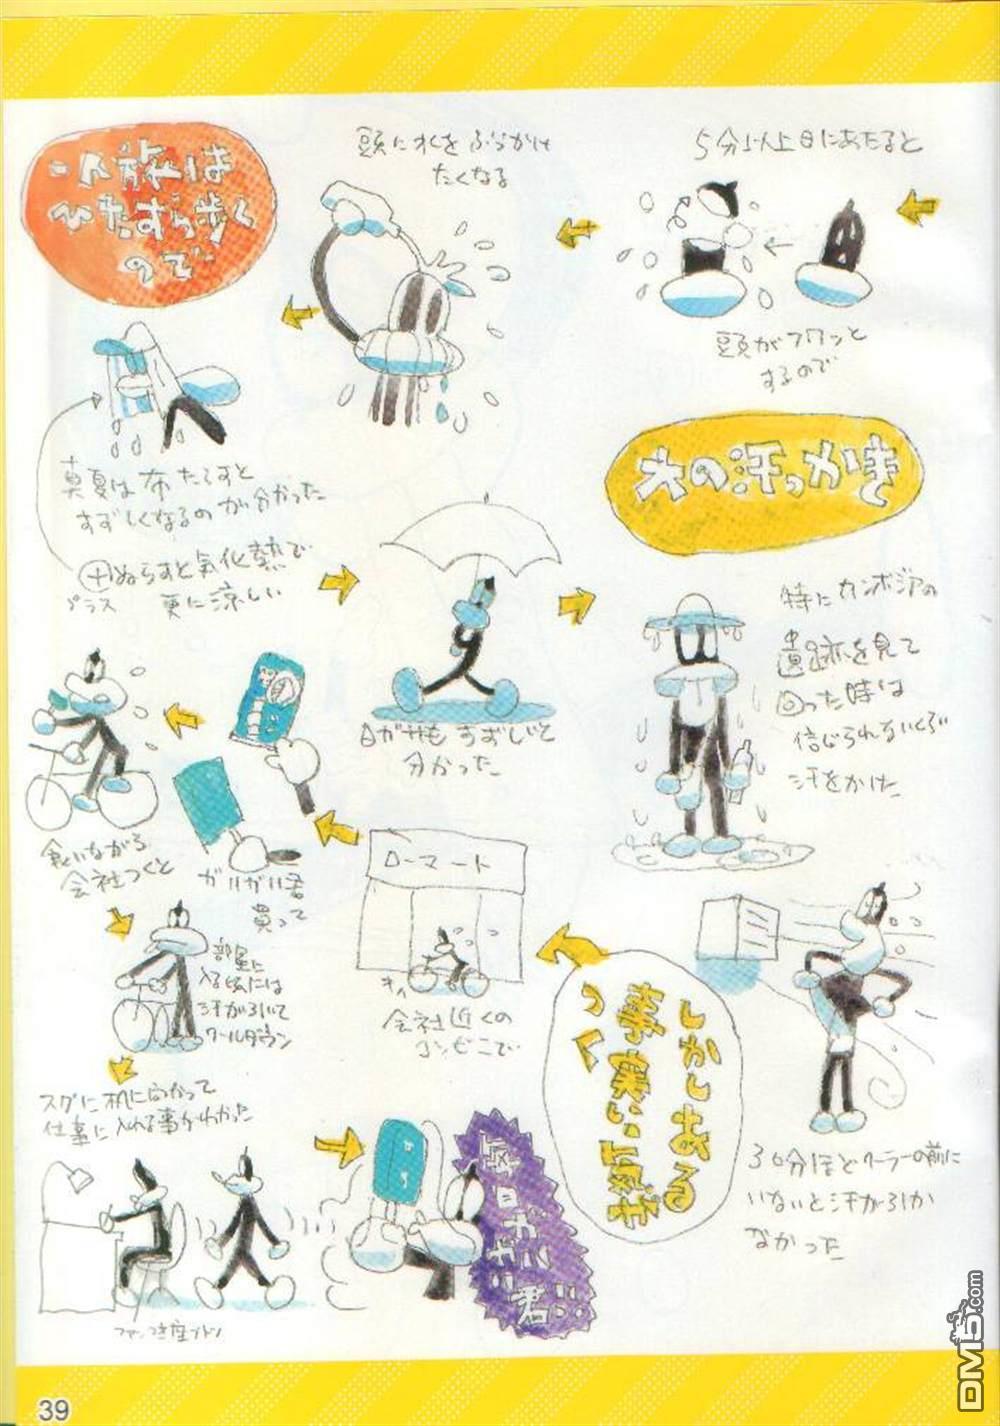 5分以上日にあたると
頭がフワッと
するので
頭に水をぶっかけ
たくなる
一人旅は
ひたすら歩く
ので
真夏は布たらすと
すずしくなるのが分かった
＋ぬらすと気化熱で
プラス 更に涼しい
日ガサもすずしいと
分かった
大の汗っかき
特にカンボジアの
遺跡を見て
回った時は
信じられないくらい
汗をかけた
30分ほどクーラーの前に
いないと汗が引か
なかった
しかしある
事実に気が
つく
ローマート
キィ
会社近くの
コンビニで
ガリガリ君
買って
食いながら
会社つくと
部屋に
入る頃には
汗が引いて
クールダウン
スグに机に向かって
仕事に入れる事がわかった
ファンつき座ブトン
39
DM5.com